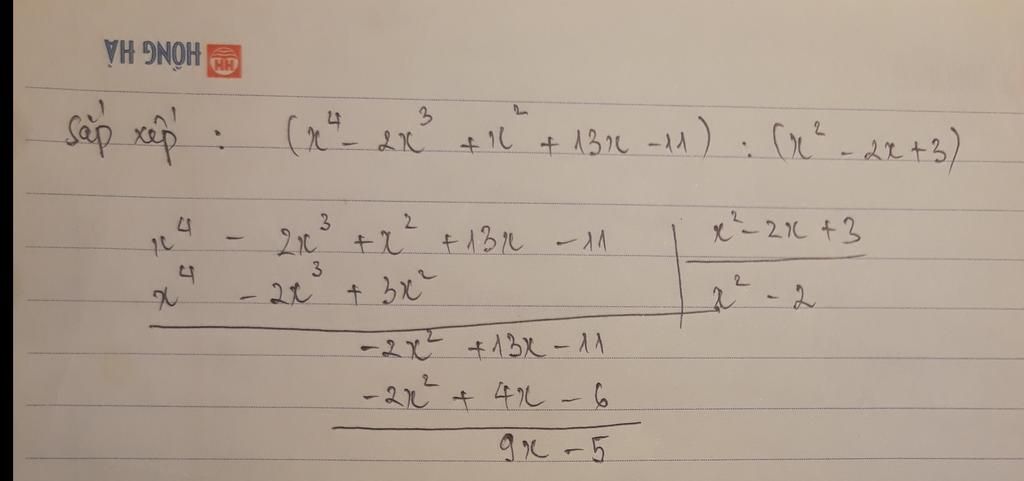 HỒNG HÀ
Sắp xếp : (x⁴ - 2x³ + x² + 13x - 11) : (x² - 2x + 3)
x⁴ - 2x³ + x² + 13x - 11 | x² - 2x + 3
x⁴ - 2x³ + 3x² | x² - 2
-2x² + 13x - 11
-2x² + 4x - 6
9x - 5